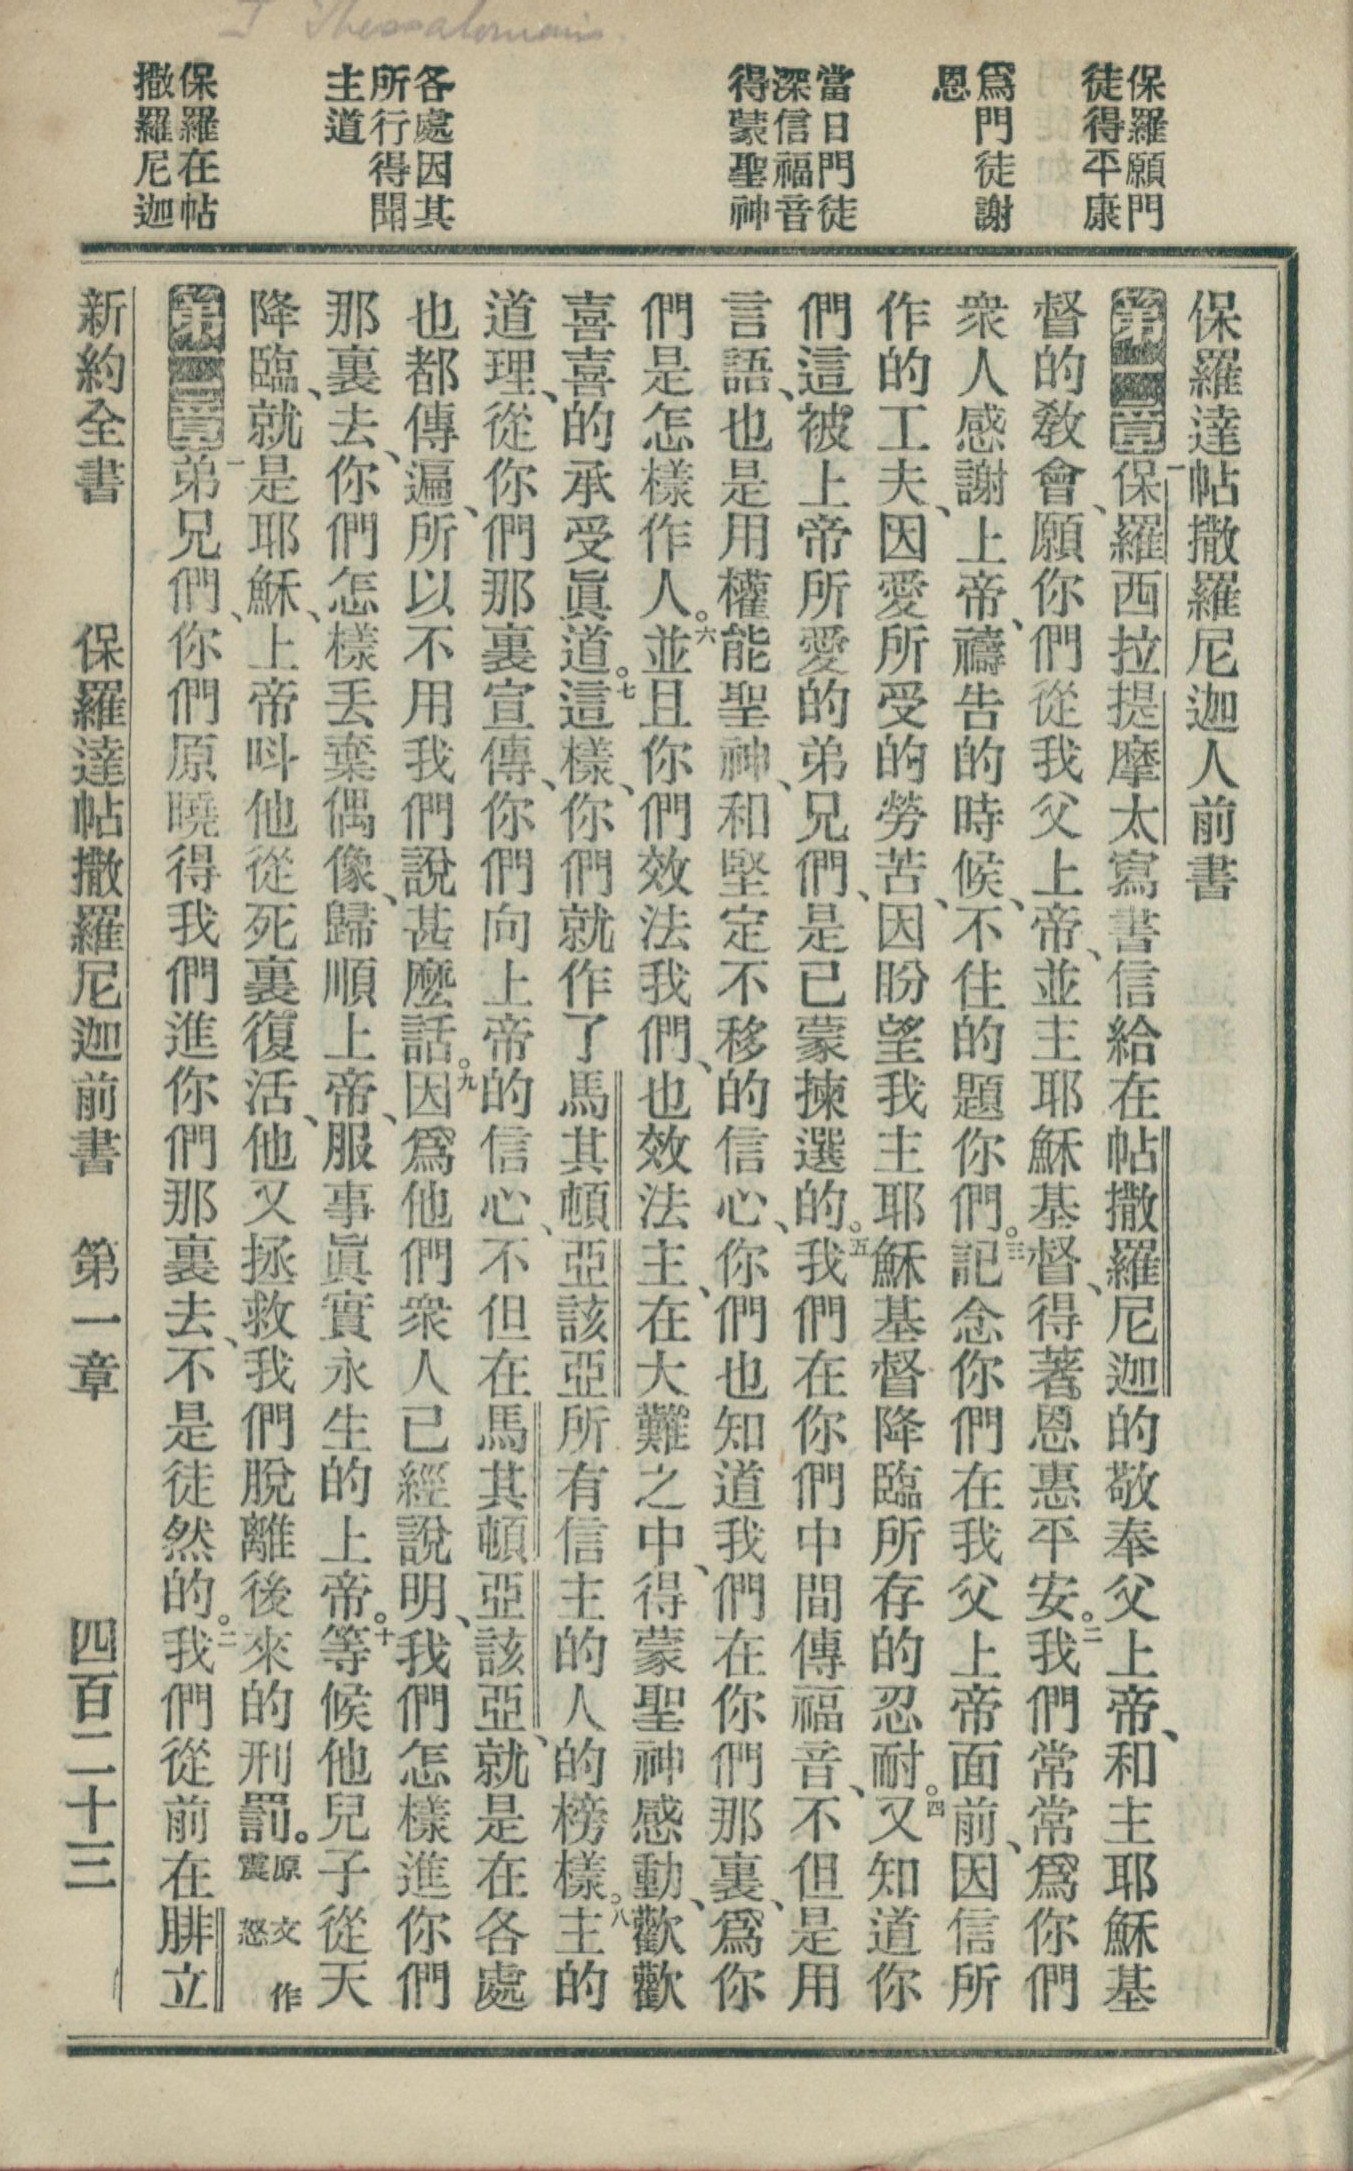 I Thessalonians.
保羅願門
徒得平康
爲門徒謝
恩
當日門徒
深信福音
得蒙聖神
各處因其
所行得聞
主道
保羅在帖
撒羅尼迦
保羅達帖撒羅尼迦人前書
第一章一保羅西拉提摩太寫書信給在帖撒羅尼迦的敬奉父上帝、和主耶穌基
督的教會、願你們從我父上帝、並主耶穌基督、得著恩惠平安。二我們常常爲你們
衆人感謝上帝、禱告的時候、不住的題你們。三記念你們在我父上帝面前、因信所
作的工夫、因愛所受的勞苦、因盼望我主耶穌基督降臨所存的忍耐。四又知道你
們這被上帝所愛的弟兄們、是已蒙揀選的。五我們在你們中間傳福音、不但是用
言語、也是用權能聖神、和堅定不移的信心、你們也知道我們在你們那裏、爲你
們是怎樣作人。六並且你們效法我們、也效法主、在大難之中、得蒙聖神感動、歡歡
喜喜的承受眞道。七這樣、你們就作了馬其頓亞該亞所有信主的人的榜樣。八主的
道理、從你們那裏宣傳、你們向上帝的信心、不但在馬其頓亞該亞、就是在各處
也都傳遍、所以不用我們說甚麼話。九因爲他們衆人已經說明、我們怎樣進你們
那裏去、你們怎樣丟棄偶像、歸順上帝、服事眞實永生的上帝。十等候他兒子從天
降臨、就是耶穌、上帝呌他從死裏復活、他又拯救我們脫離後來的刑罰。原文作震怒
第二章一弟兄們、你們原曉得我們進你們那裏去、不是徒然的。二我們從前在腓立
新約全書　保羅達帖撒羅尼迦前書　第一章　四百二十三